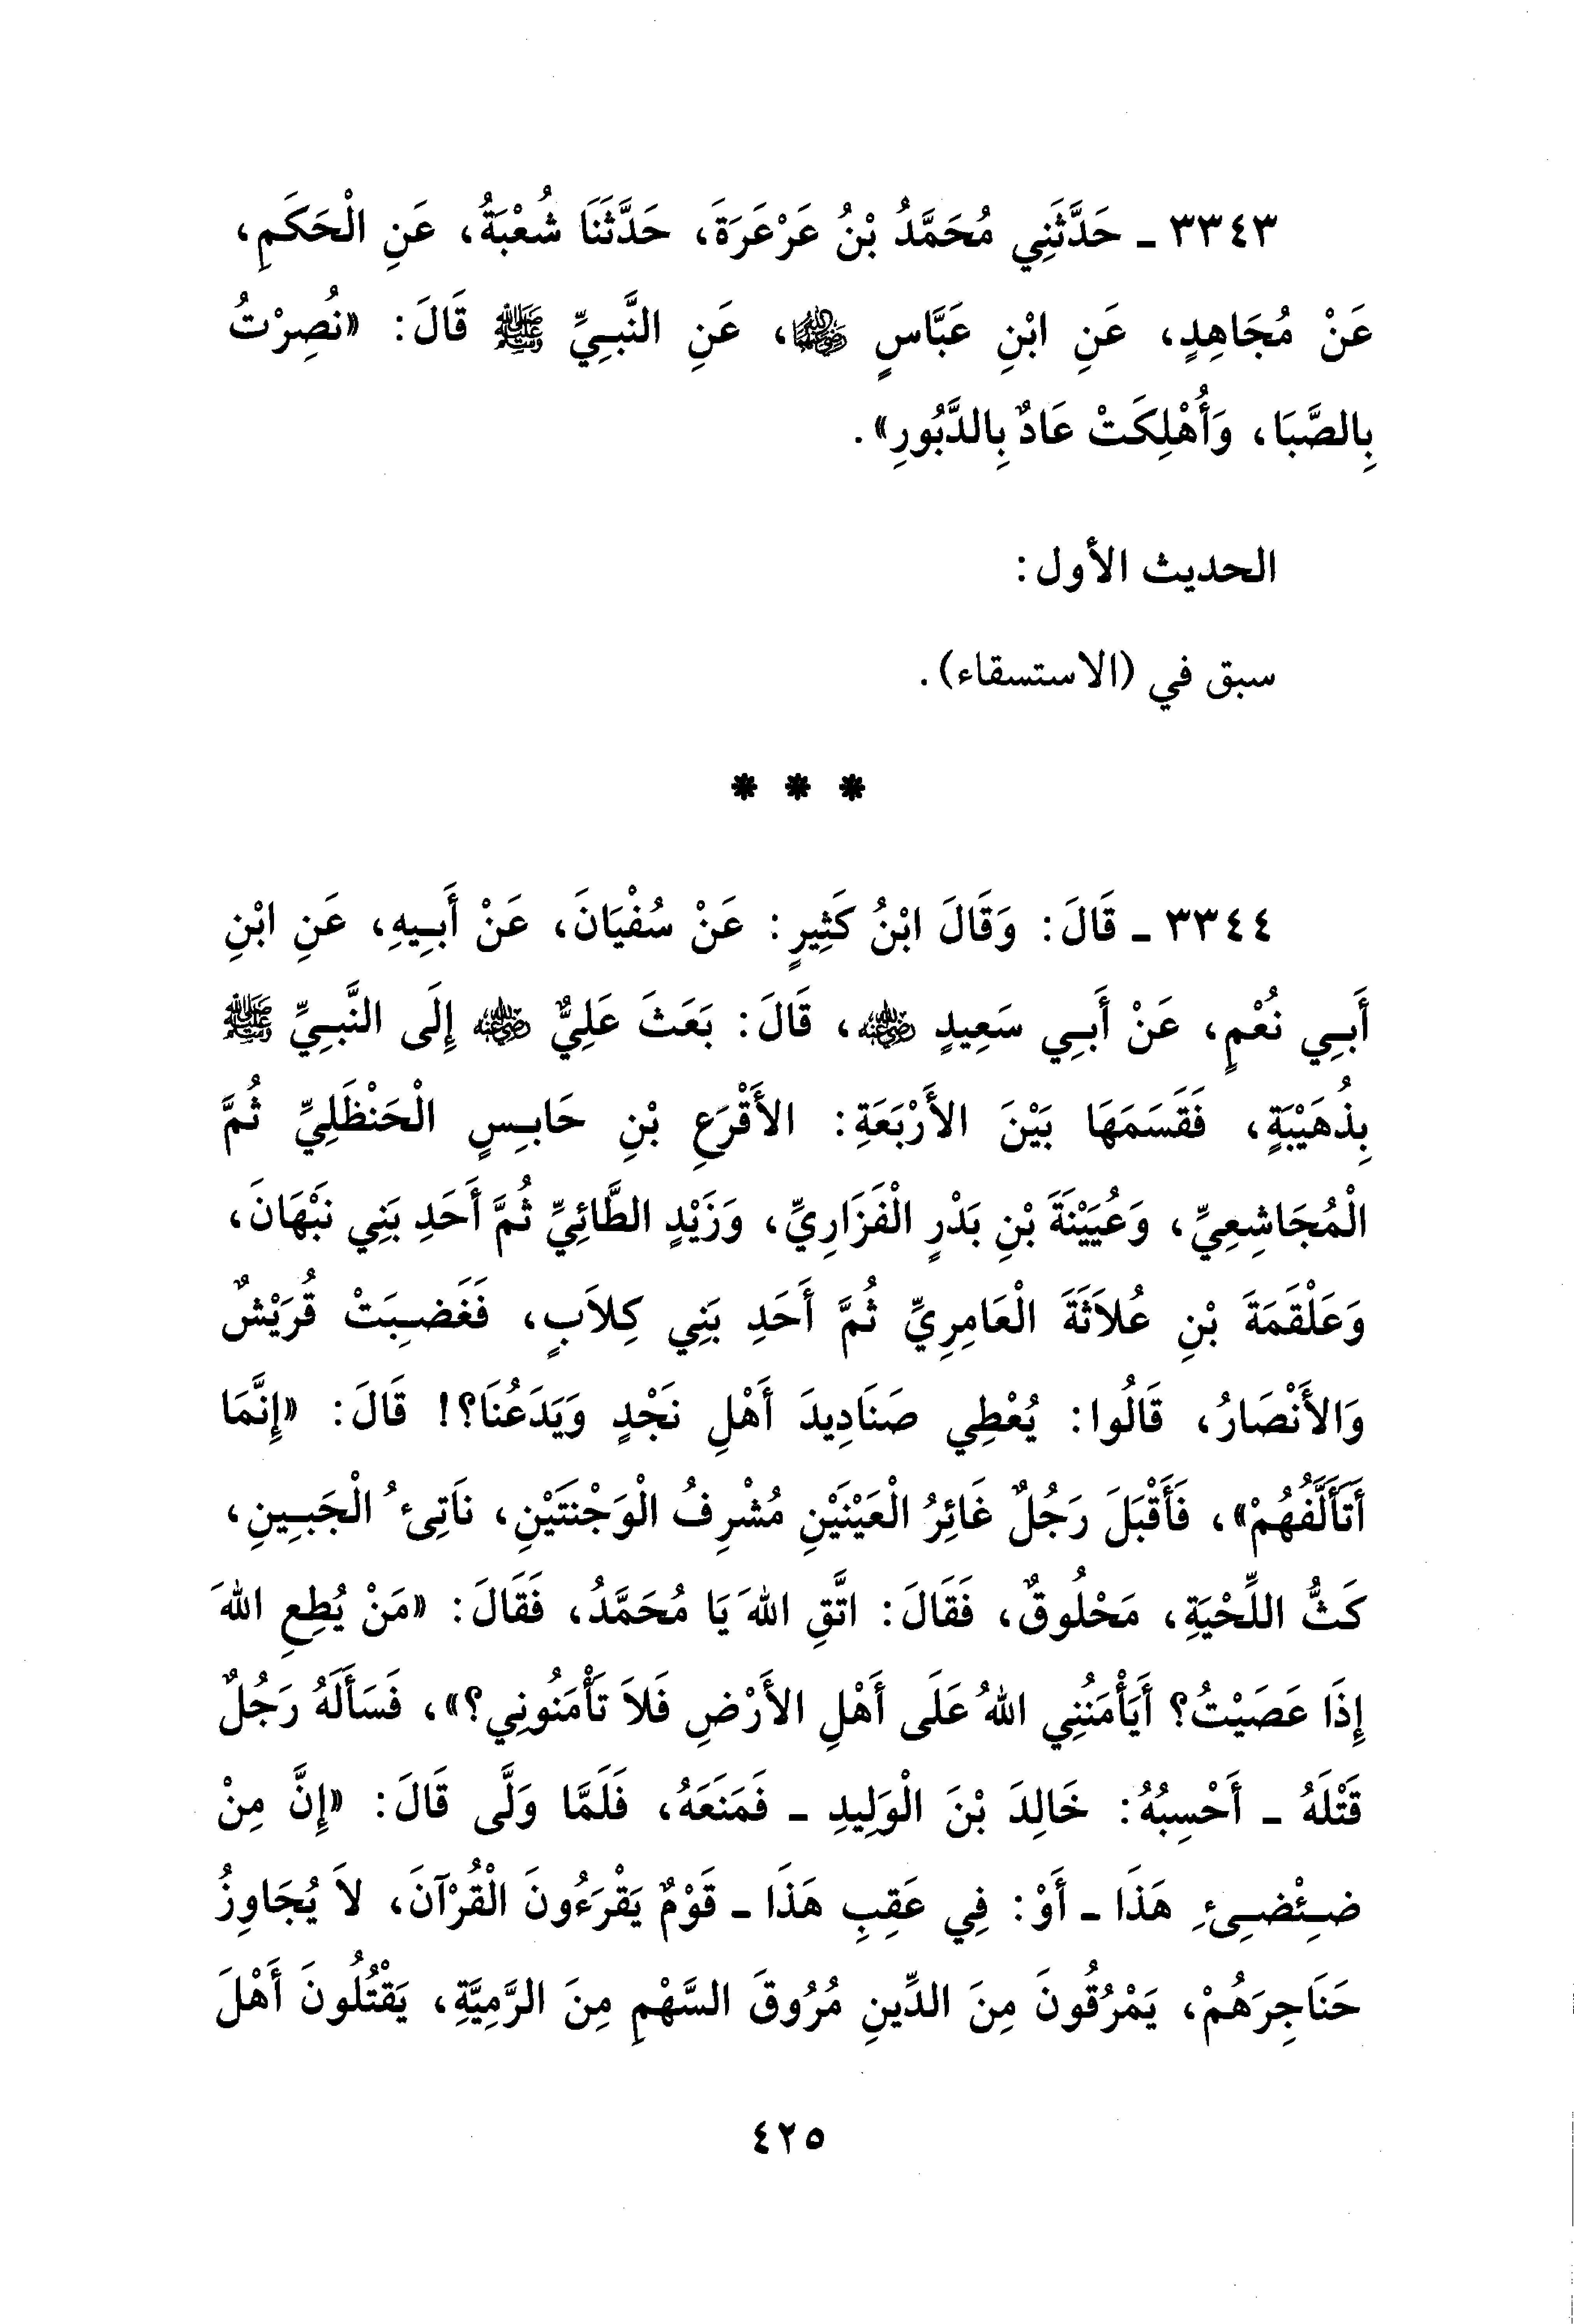 ٣٣٤٣ ـ حَدَّثَنِي مُحَمَّدُ بْنُ عَرْعَرَةَ، حَدَّثَنَا شُعْبَةُ، عَنِ الْحَكَمِ،
عَنْ مُجَاهِدٍ، عَنِ ابْنِ عَبَّاسٍ رضي الله عنهما، عَنِ النَّبِيِّ ﷺ قَالَ: «نُصِرْتُ
بِالصَّبَا، وَأُهْلِكَتْ عَادٌ بِالدَّبُورِ».
الحديث الأول:
سبق في (الاستسقاء).
* * *
٣٣٤٤ ـ قَالَ: وَقَالَ ابْنُ كَثِيرٍ: عَنْ سُفْيَانَ، عَنْ أَبِيهِ، عَنِ ابْنِ
أَبِي نُعْمٍ، عَنْ أَبِي سَعِيدٍ رضي الله عنه، قَالَ: بَعَثَ عَلِيٌّ رضي الله عنه إِلَى النَّبِيِّ ﷺ
بِذُهَيْبَةٍ، فَقَسَمَهَا بَيْنَ الأَرْبَعَةِ: الأَقْرَعِ بْنِ حَابِسٍ الْحَنْظَلِيِّ ثُمَّ
الْمُجَاشِعِيِّ، وَعُيَيْنَةَ بْنِ بَدْرٍ الْفَزَارِيِّ، وَزَيْدٍ الطَّائِيِّ ثُمَّ أَحَدِ بَنِي نَبْهَانَ،
وَعَلْقَمَةَ بْنِ عُلاَثَةَ الْعَامِرِيِّ ثُمَّ أَحَدِ بَنِي كِلاَبٍ، فَغَضِبَتْ قُرَيْشٌ
وَالأَنْصَارُ، قَالُوا: يُعْطِي صَنَادِيدَ أَهْلِ نَجْدٍ وَيَدَعُنَا؟! قَالَ: «إِنَّمَا
أَتَأَلَّفُهُمْ»، فَأَقْبَلَ رَجُلٌ غَائِرُ الْعَيْنَيْنِ مُشْرِفُ الْوَجْنَتَيْنِ، نَاتِئُ الْجَبِينِ،
كَثُّ اللِّحْيَةِ، مَحْلُوقٌ، فَقَالَ: اتَّقِ اللهَ يَا مُحَمَّدُ، فَقَالَ: «مَنْ يُطِعِ اللهَ
إِذَا عَصَيْتُ؟ أَيَأْمَنُنِي اللهُ عَلَى أَهْلِ الأَرْضِ فَلاَ تَأْمَنُونِي؟»، فَسَأَلَهُ رَجُلٌ
قَتْلَهُ ـ أَحْسِبُهُ: خَالِدَ بْنَ الْوَلِيدِ ـ فَمَنَعَهُ، فَلَمَّا وَلَّى قَالَ: «إِنَّ مِنْ
ضِئْضِئِ هَذَا ـ أَوْ: فِي عَقِبِ هَذَا ـ قَوْمٌ يَقْرَءُونَ الْقُرْآنَ، لاَ يُجَاوِزُ
حَنَاجِرَهُمْ، يَمْرُقُونَ مِنَ الدِّينِ مُرُوقَ السَّهْمِ مِنَ الرَّمِيَّةِ، يَقْتُلُونَ أَهْلَ
٤٢٥